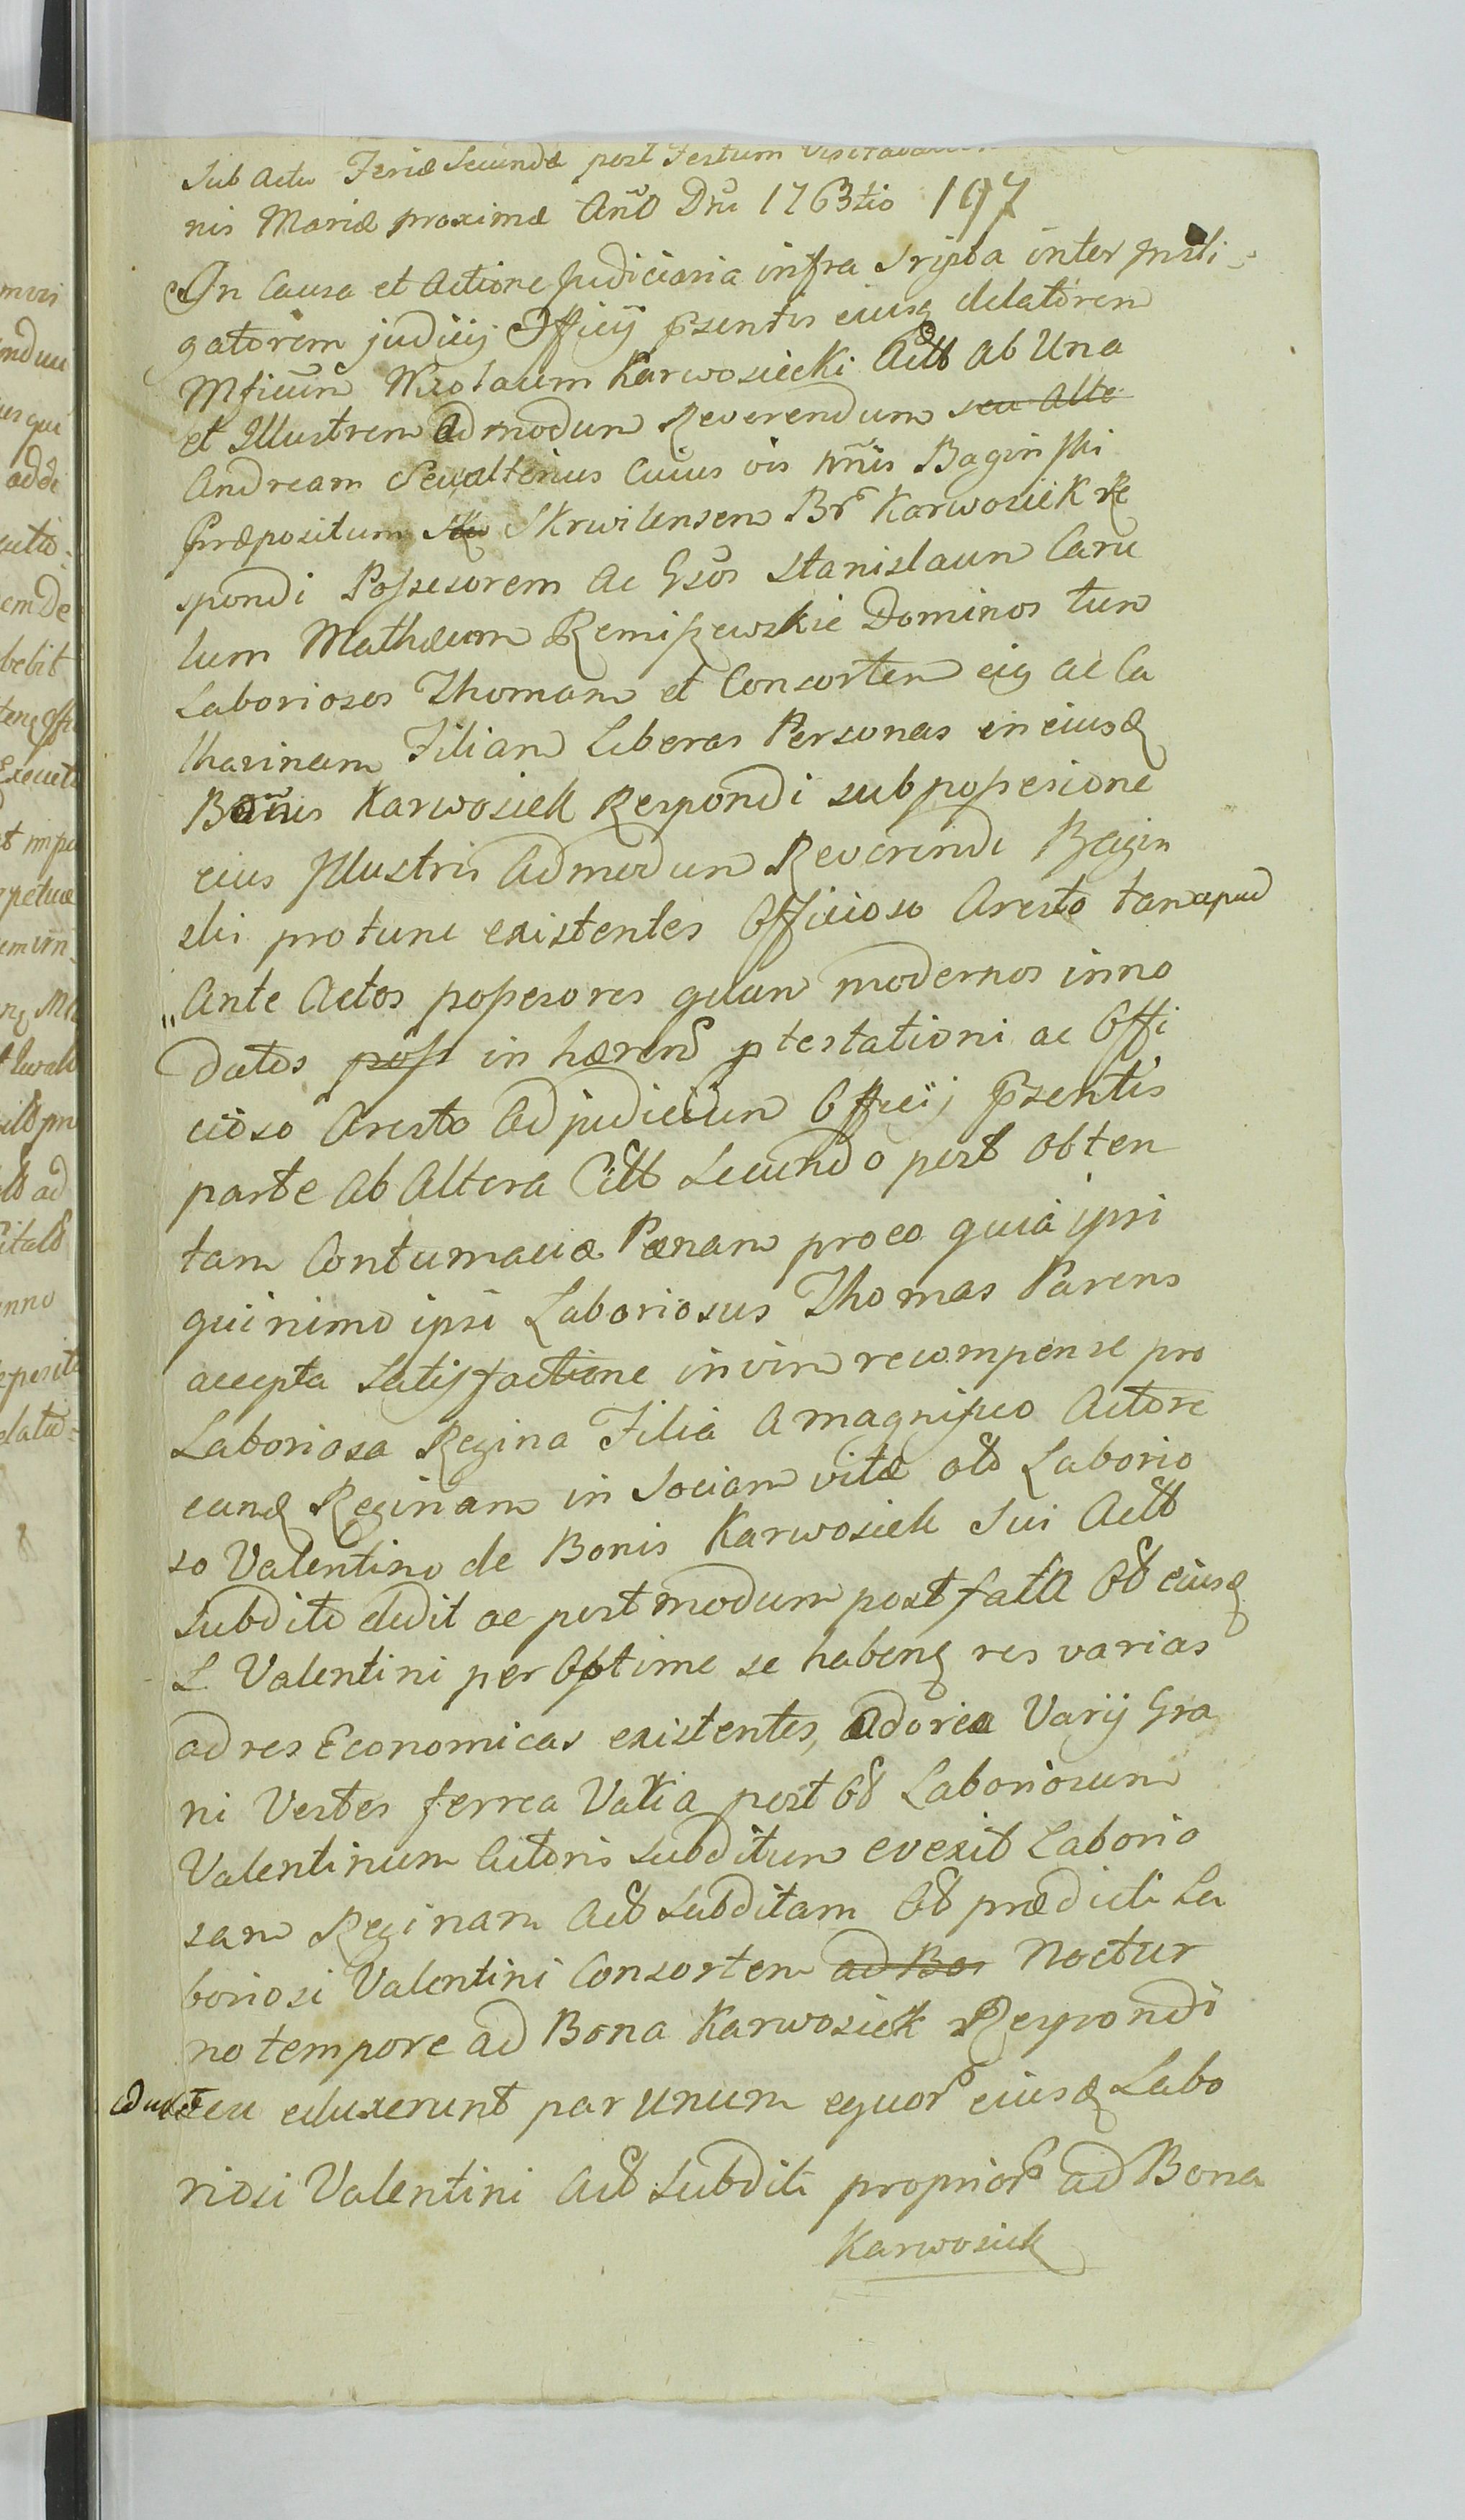 Sub Actu Feriæ Secundæ post Festum
nis Mariæ proximæ Añõ Dñi 1763tio 197
In Causa et Actione Judiciaria infra Sripta inter Insti
gatorem judicij Officij pñsentis eiusq delatorem
Mficum Nicolaum Karwosiecki Actt ab Una
et Illustrem Admodum Reverendum seu Alte
Andream Seu alterius Cuius vis nñis Baginski
Præpositum Skrwilensem Br Karwosiek Re
spondi Possesorem Ac Gsos Stanislaum Caru
lum Mathæum Remiszewskie Dominos tum
Laboriosos Thomam et Consortem eig ac Ca
tharinam Filiam Liberas Personas in eiusq
Bonis Karwosiek Respondi sub possesione
eius Illustris Admodum Reverendi Bagin
ski pro tunc existentes Officioso Aresto tam apud
Ante Actos possesores quam modernos inno
datos post in hæren ptestationi ac Offi
cioso Aresto Ad judicium Officij pñsentis
parte ab Altera Citt Secundo post obten
tam Contumaciæ Pænam pro eo quia ipsi
quinimo ipsi Laboriosus Thomas Parens
accepta Satisfactione in vim recompense pro
Laboriosa Regina Filia A magnifico Actore
eanq Reginam in Sociam vitæ olb Laborio
so Valentino de Bonis Karwosiek Sui Actt
Subdito dedit ac post modum post fata Ob eiusq
L Valentini per Optime se habenq res varias
ad res Economicas existentes, Adorea Varij Gra
ni Vestes ferrea Varia post Ob Laboriosum
Valentinum Actoris Subditum evexit Laborio
sam Reginam Act Subditam Ob prædicti La
boriosi Valentini Consortem ad Bos Noctur
no tempore ad Bona Karwosiek Respondi
seu eduxerunt par unum equor eiusq Labo
riosi Valentini Act Subditi proprior ad Bona
Karwosiek